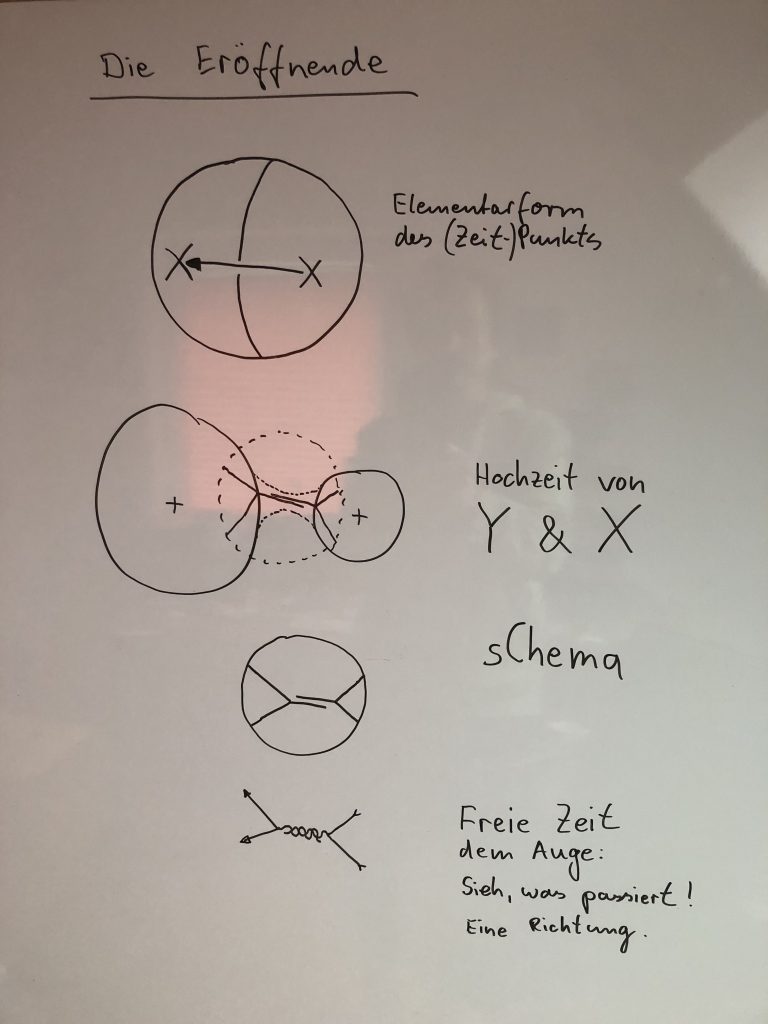 Die Eröffnende
Elementarform
des (Zeit-)Punkts
X X
Hochzeit von
Y & X
+ +
sChema
Freie Zeit
dem Auge:
Sieh, was passiert!
Eine Richtung.